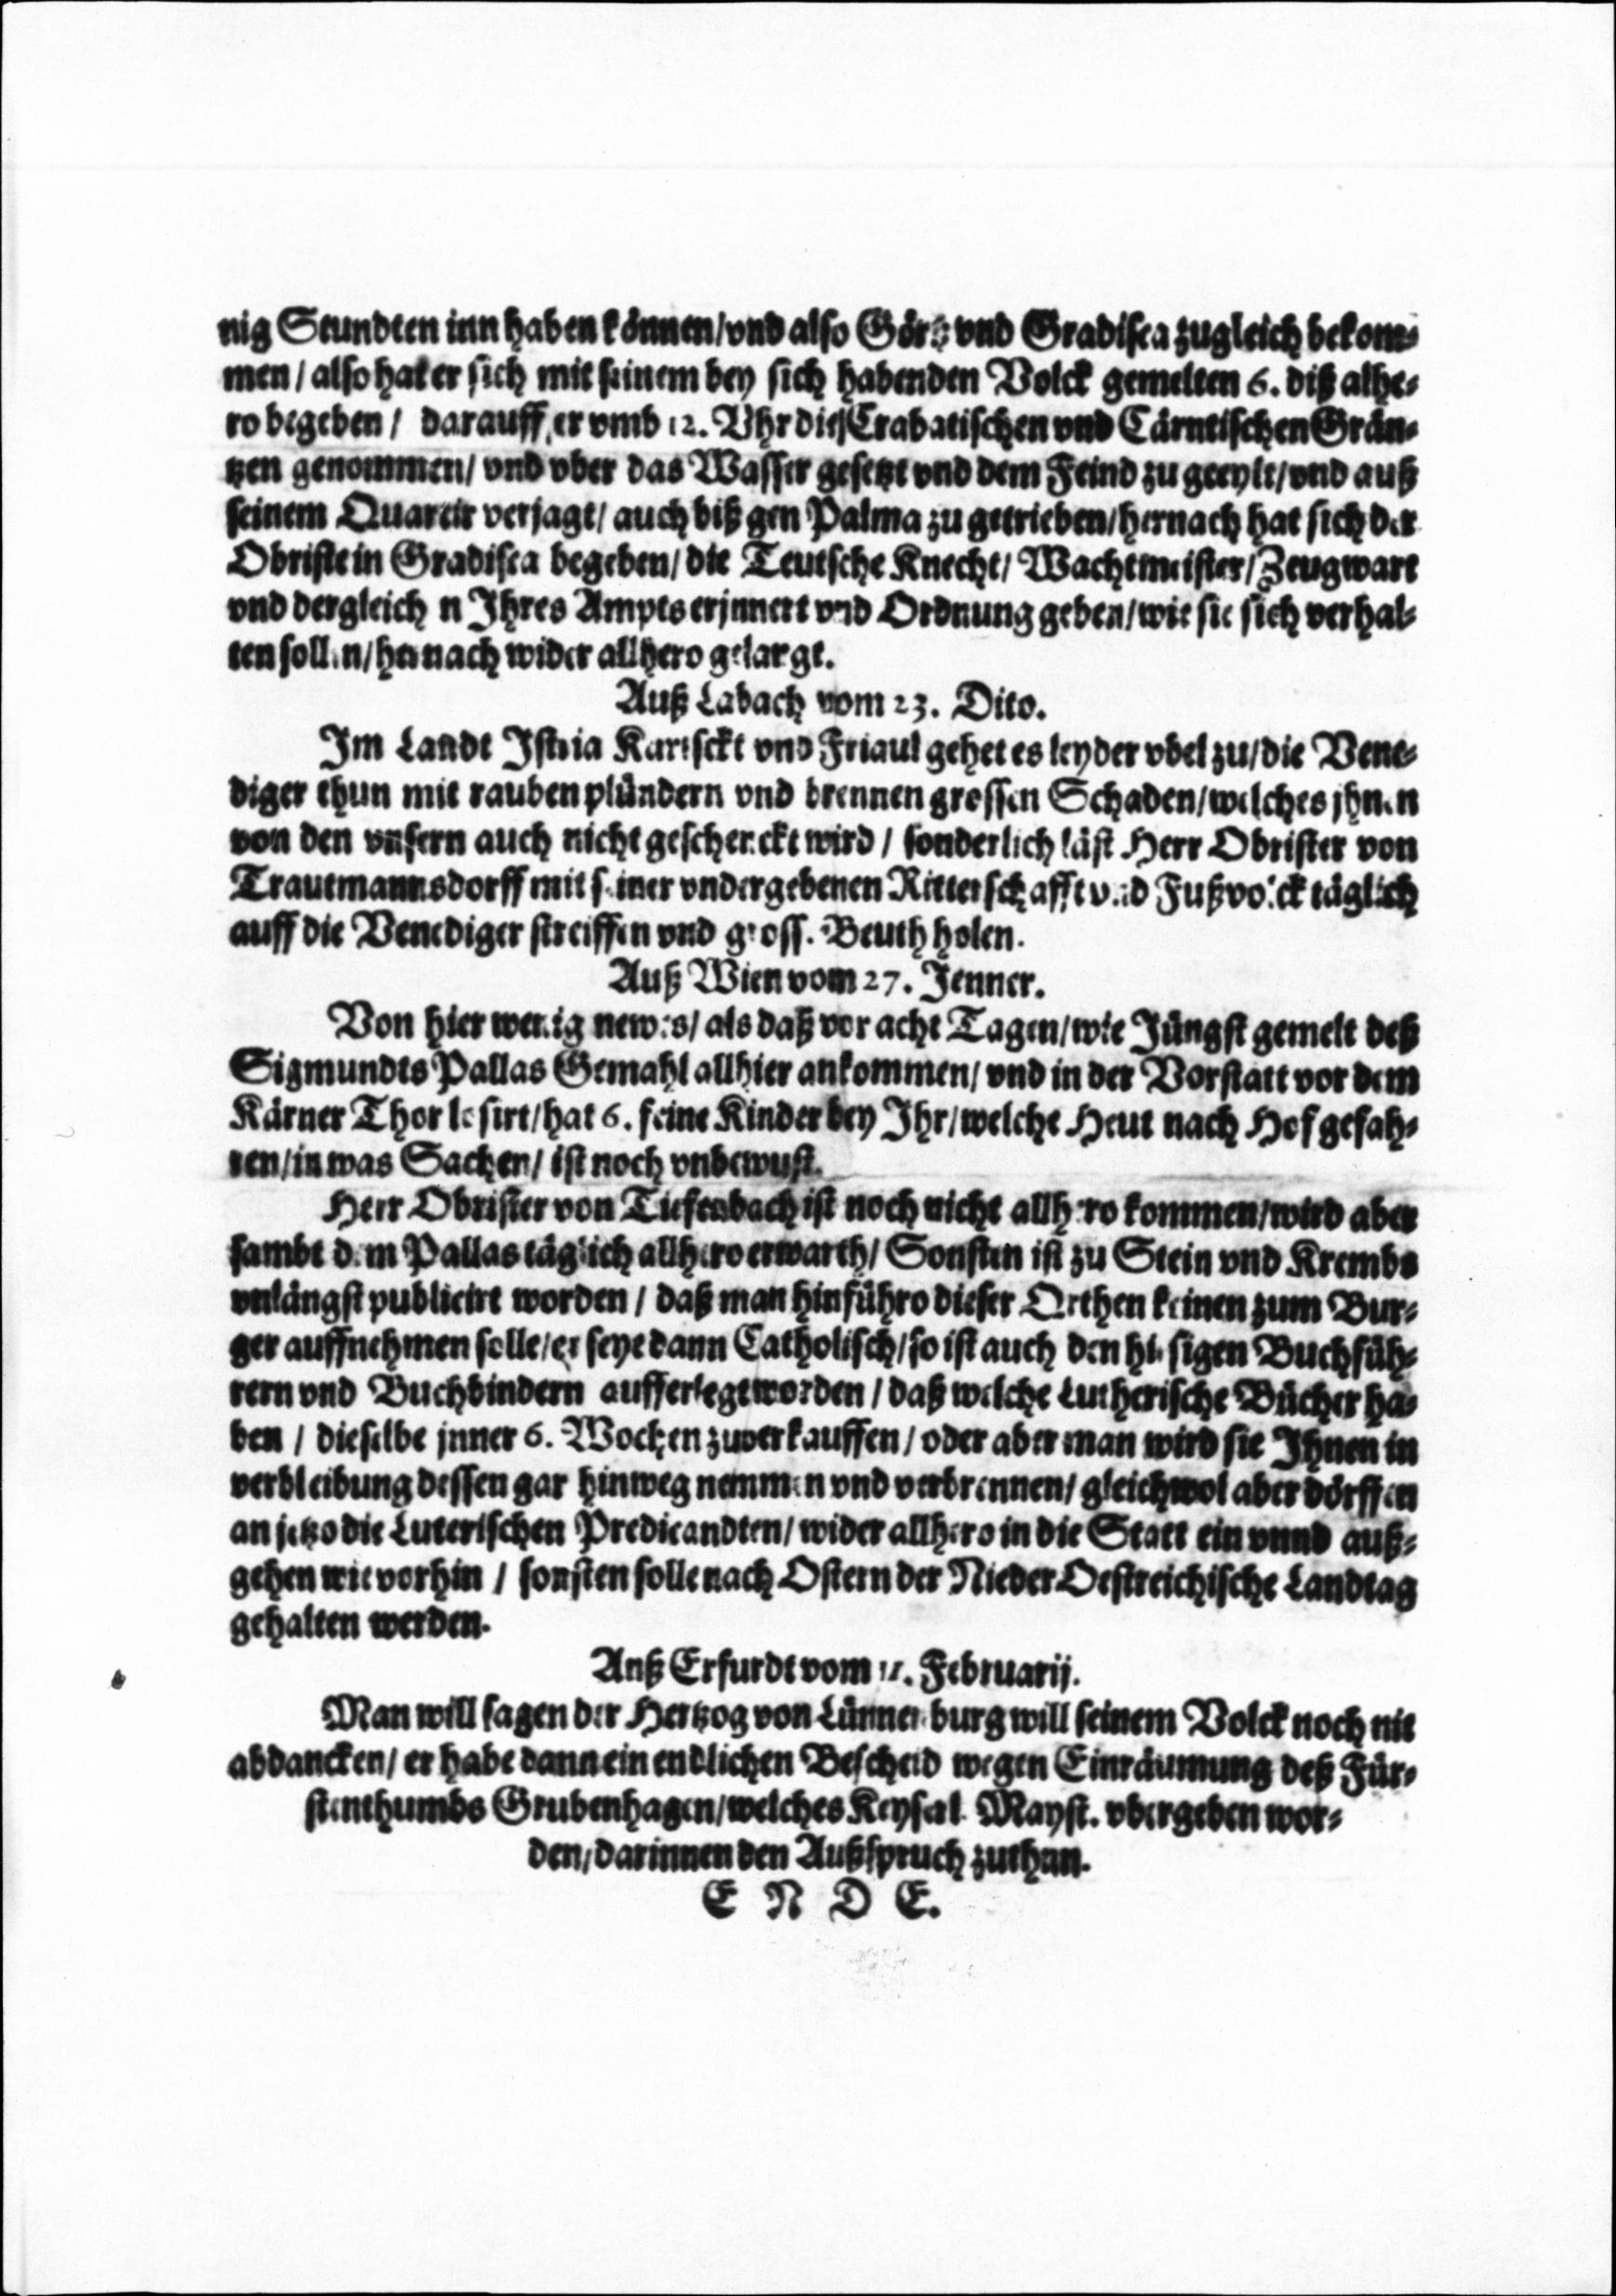 nig Stundten inn haben können/vnd also Görtz vnd Gradisca zugleich bekom-
men / also hat er sich mit seinem bey sich habenden Volck gemelten 6. diß alhe-
ro begeben / darauff er vmb 12. Vhr die Crabatischen vnd Cärntischen Grän-
tzen genommen/ vnd vber das Wasser gesetzt vnd dem Feind zu geeylt/vnd auß
seinem Quartir verjagt/ auch biß gen Palma zu getrieben/hernach hat sich der
Obriste in Gradisca begeben/ die Teutsche Knecht/ Wachtmeister/ Zeugwart
vnd dergleichen Jhres Ampts erjnnert vnd Ordnung geben/wie sie sich verhal-
ten sollen/hernach wider allhero gelangt.
Auß Labach vom 23. Dito.
Jm Landt Jstria Kartsckt vnd Friaul gehet es leyder vbel zu/die Vene-
diger thun mit rauben plündern vnd brennen grossen Schaden/welches jhnen
von den vnsern auch nicht geschenckt wird / sonderlich läst Herr Obrister von
Trautmannsdorff mit seiner vndergebenen Ritterschafft vnd Fußvolck täglich
auff die Venediger streiffen vnd grosse Beuth holen.
Auß Wien vom 27. Jenner.
Von hier wenig newes/ als daß vor acht Tagen/wie Jüngst gemelt deß
Sigmundts Pallas Gemahl allhier ankommen/ vnd in der Vorstatt vor dem
Kärner Thor losirt/hat 6. seine Kinder bey Jhr/welche Heut nach Hof gefah-
ren/in was Sachen/ ist noch vnbewust.
Herr Obrister von Tiefenbach ist noch nicht allhero kommen/wird aber
sambt dem Pallas täglich allhero erwarth/ Sonsten ist zu Stein vnd Krembs
vnlängst publicirt worden / daß man hinführo dieser Orthen keinen zum Bur-
ger auffnehmen solle/er seye dann Catholisch/so ist auch den hiesigen Buchfüh-
rern vnd Buchbindern aufferlegt worden / daß welche Lutherische Bücher ha-
ben / dieselbe jnner 6. Wochen zuverkauffen / oder aber man wird sie Jhnen in
verbleibung dessen gar hinweg nemmen vnd verbrennen/ gleichwol aber dörffen
an jetzo die Luterischen Predicandten/ wider allhero in die Statt ein vnnd auß-
gehen wie vorhin / sonsten solle nach Ostern der Nieder Oestreichische Landtag
gehalten werden.
Auß Erfurdt vom 11. Februarij.
Man will sagen der Hertzog von Lünnenburg will seinem Volck noch nit
abdancken/ er habe dann ein endlichen Bescheid wegen Einräumung deß Für-
stenthumbs Grubenhagen/welches Keyserl. Mayst. vbergeben wor-
den/darinnen den Außspruch zuthun.
E N D E.